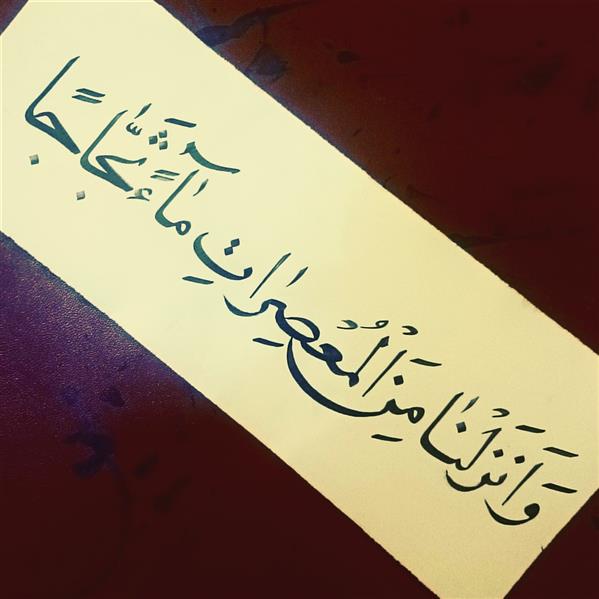 وَاَنْزَلْنَا مِنَ الْمُعْصِرَاتِ مَٓاءً ثَجَّاجًا